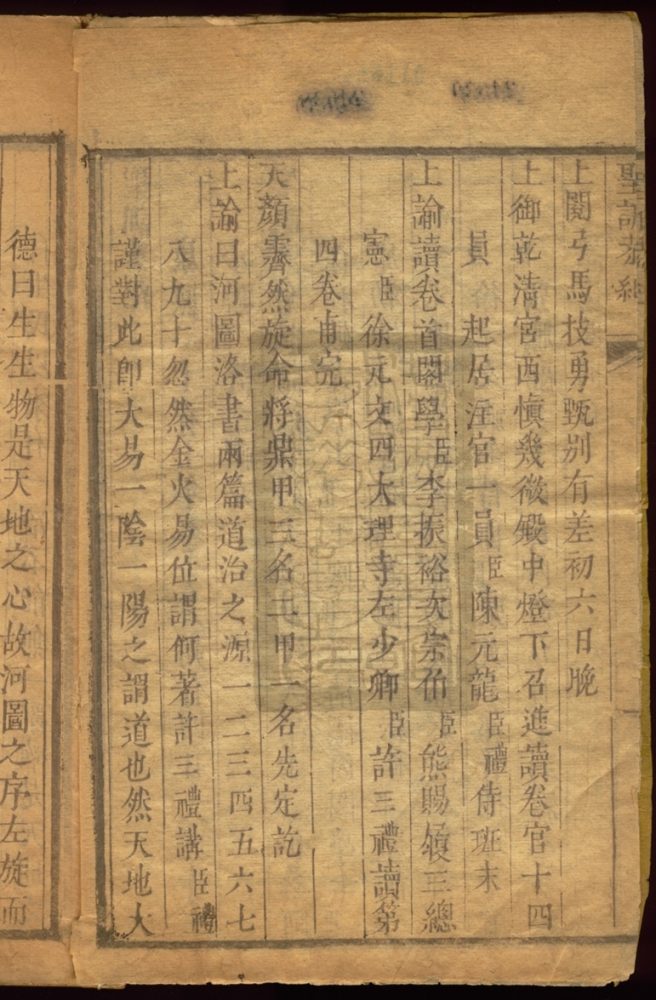 聖訓
上閱弓馬技勇甄别有差初六日晚
上御乾清宫西慎幾微殿中燈下召進讀卷官十四
員起居注官一員臣陳元龍臣禮侍班末
上諭讀卷首閣學臣李振裕次宗伯臣熊賜履三總
憲臣徐元文四大理寺左少卿臣許三禮讀第
四卷甫完
天顏霽然旋命將鼎甲三名二甲一名先定訖
上諭曰河圖洛書兩篇道治之源一二三四五六七
八九十忽然金火易位謂何著許三禮講臣禮
謹對此卽大易一陰一陽之謂道也然天地大
德曰生生物是天地之心故河圖之序左旋而